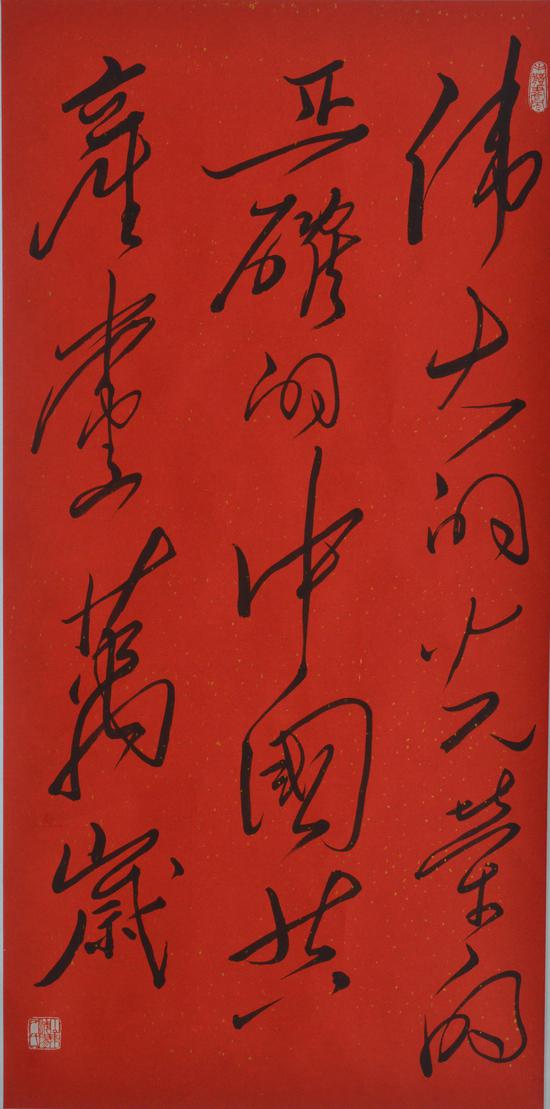 伟大的光荣的
正確的中國共
產党萬歲